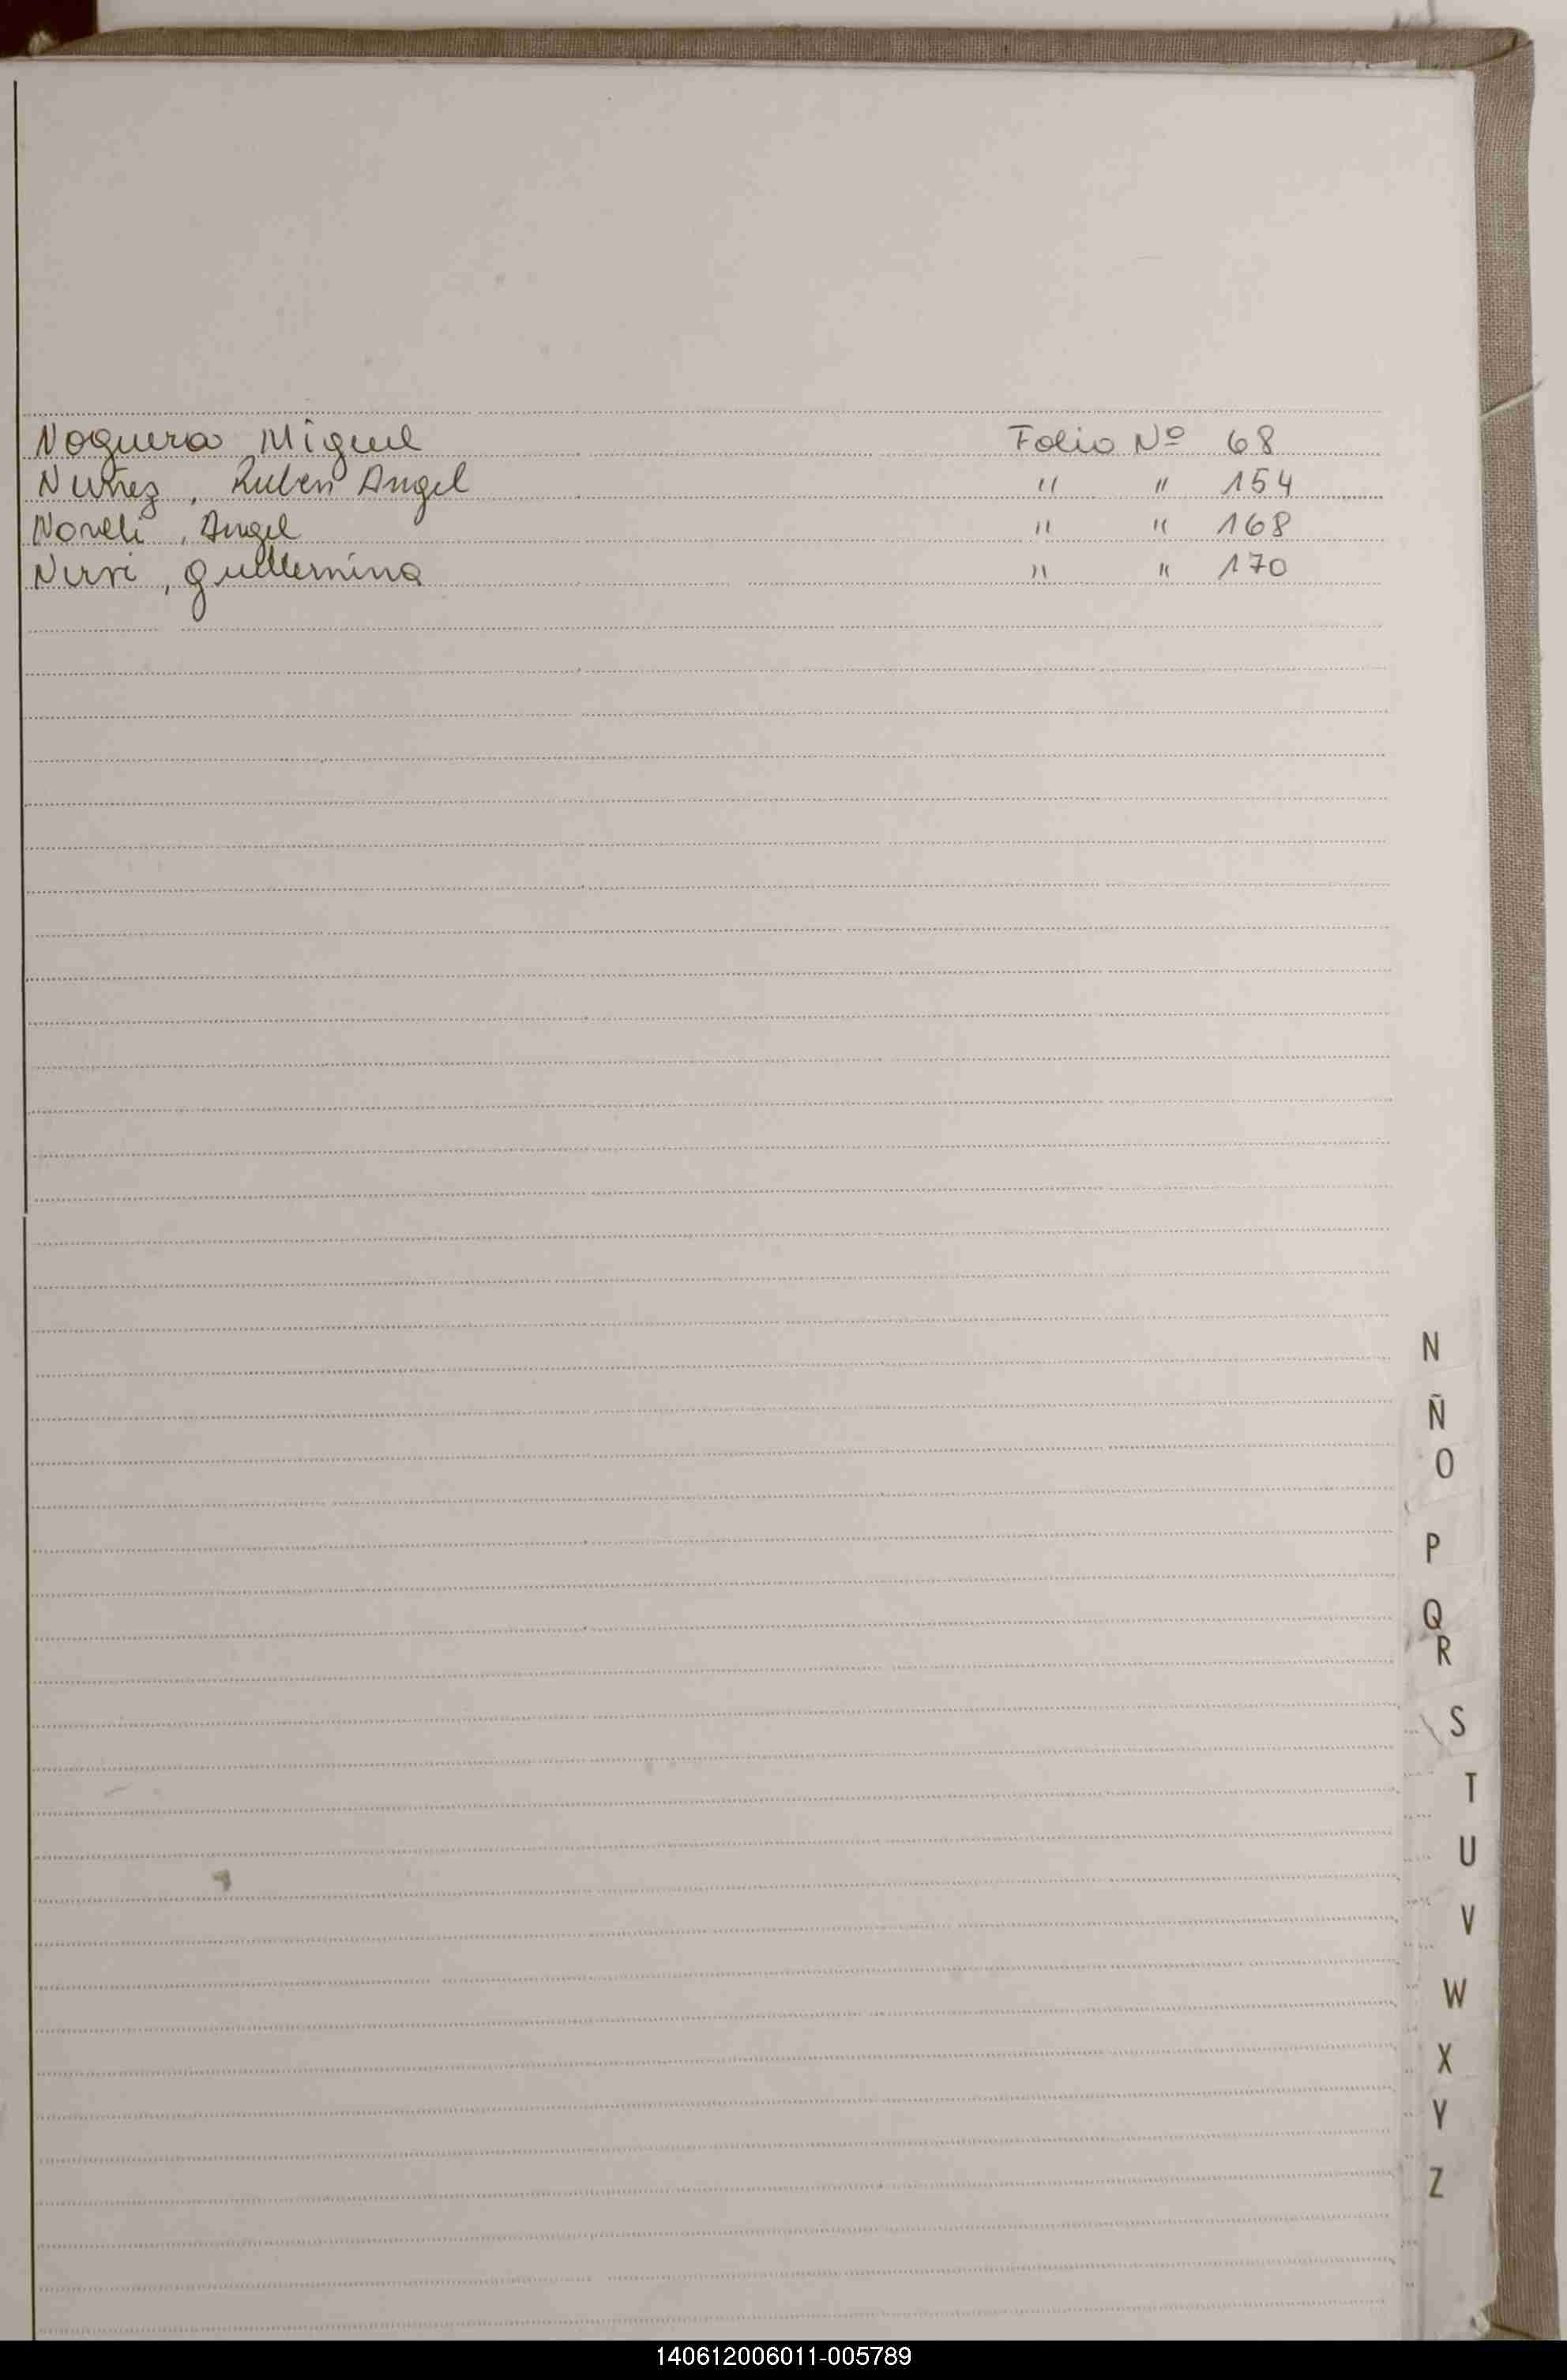 Noguera Miguel Folio Nº 68
Nuñez, Ruben Angel " " 154
Noreli, Angel " " 168
, Guillermina " " 170
N
Ñ
O
P
Q
R
S
T
U
V
W
X
Y
Z
140612006011-005789